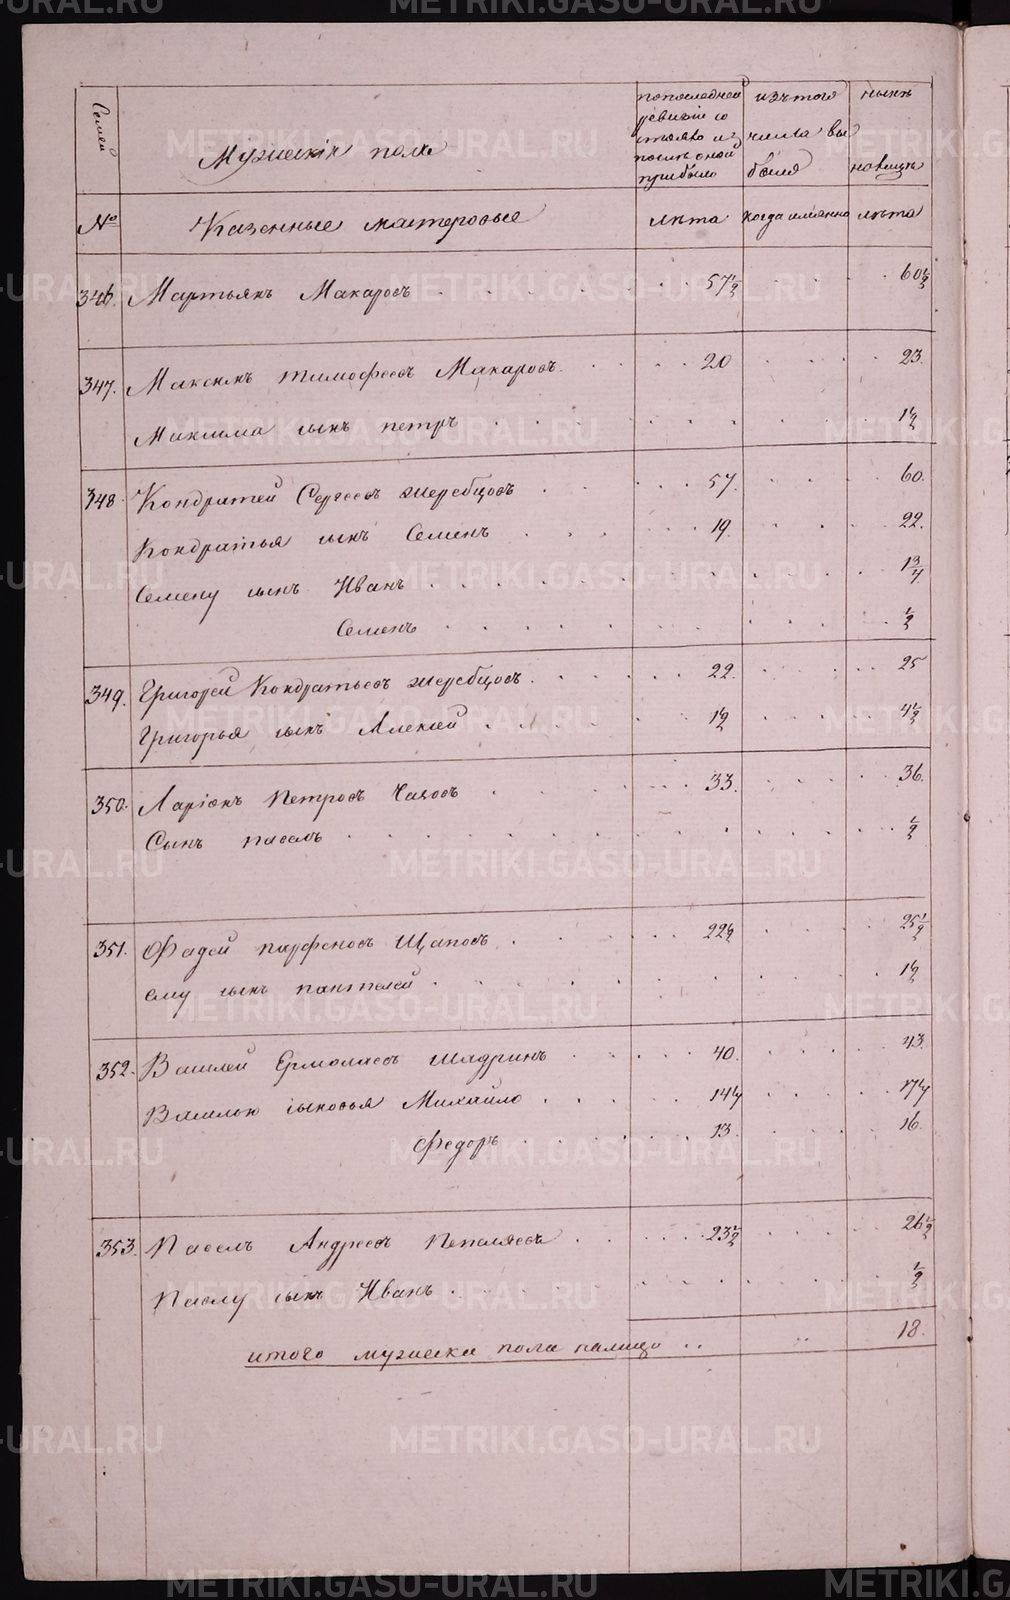 Семей
Мужескій полъ
попоследней
ревизіи со
стояло и
после оной
прибыло
изътого
числа вы
было
ныне
налицо
№
Казенные мастеровые
лета
когда имянно
лета
346. Мартьянъ Макаровъ 57½ 60½
347. Максимъ тимофеевъ Макаровъ 20 23.
Максима сынъ петръ 1½
348 Кондратей Сергеевъ жеребцовъ 57. 60.
Кондратья сынъ Семенъ 19. 22.
Семену сынъ Иванъ 1¾
Семенъ ½
349. Григорей Кондратьевъ жеребцовъ 22. 25
Григорья сынъ Алексей 1½ 4½
350. Ларіонъ Петровъ Чазовъ 33. 36.
Сынъ павелъ ½
351. Фадей парфеновъ Щаповъ 22½ 25½
ему сынъ пантелей 1½
352. Василей Ермолаевъ шадринъ 40. 43.
Василью сыновья Михайло 14¼ 17¼
Федоръ 13. 16.
353. Павелъ Андреевъ Пепеляевъ 23½ 26½
Павлу сынъ Иванъ ½
итого мужеска пола налицо 18.
METRIKI.GASO-URAL.RU